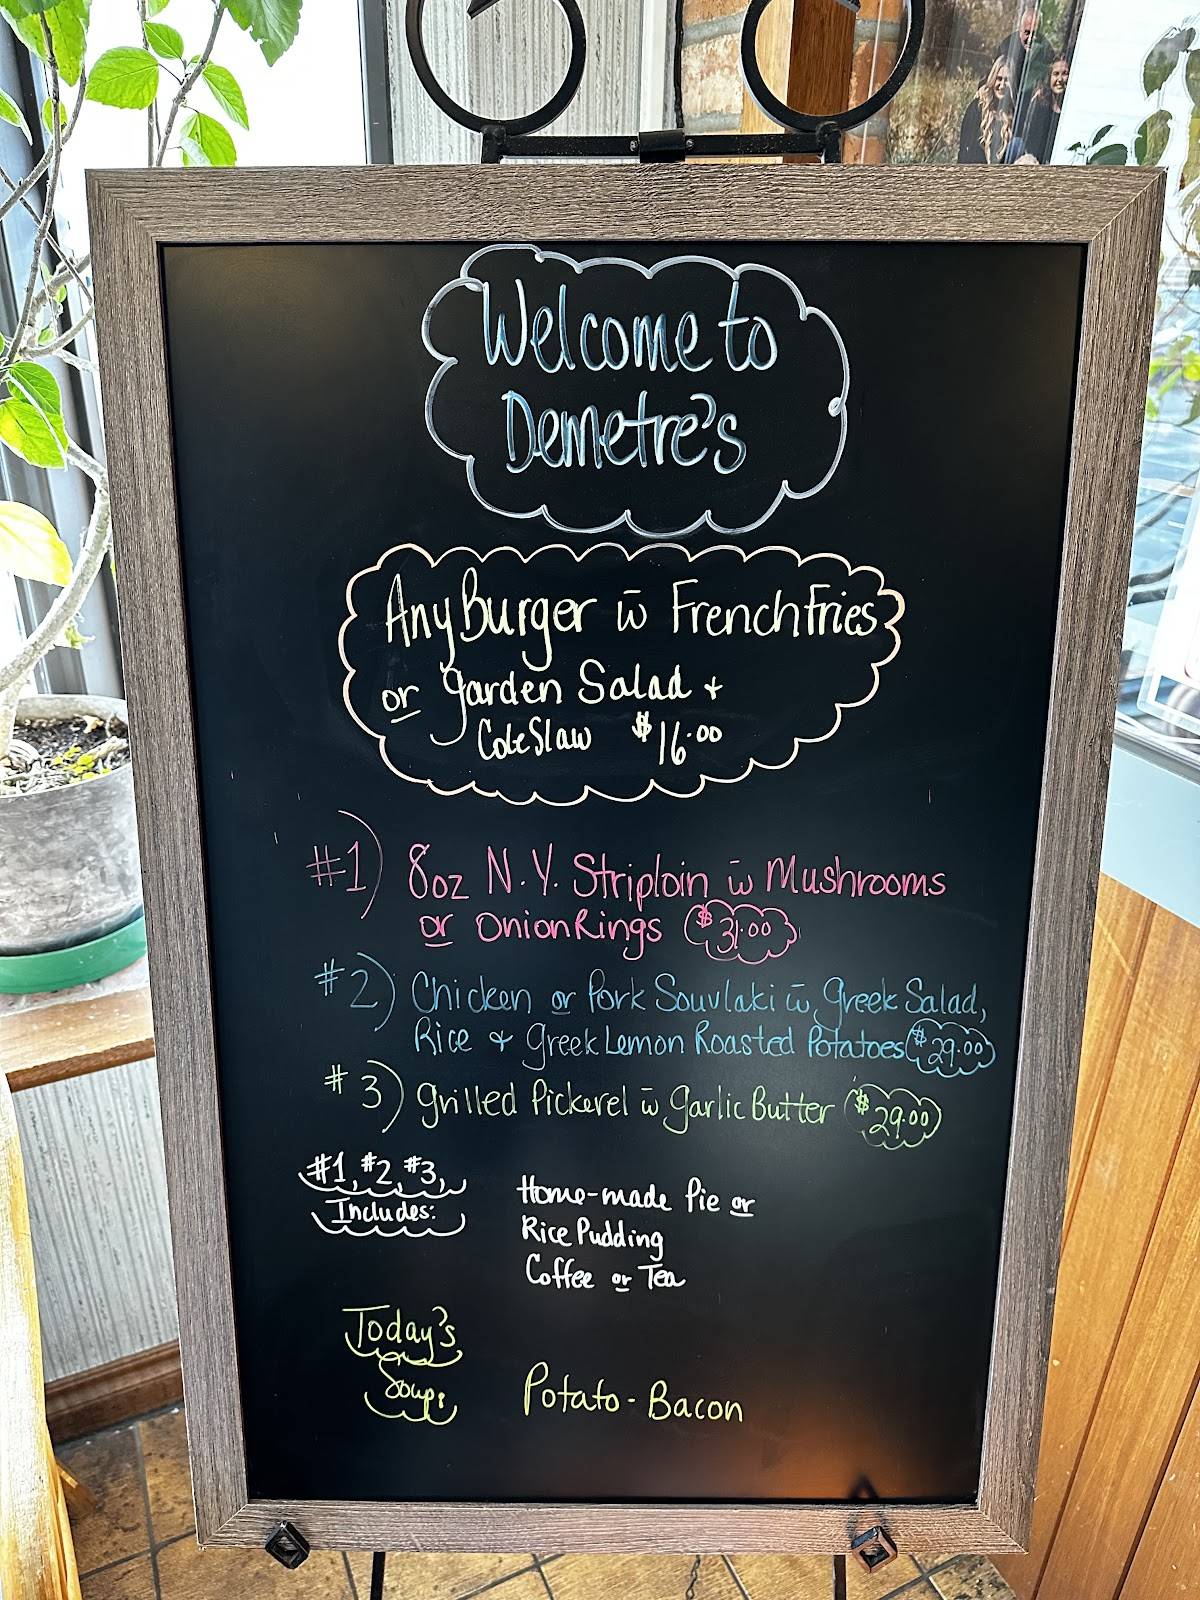 Welcome to
Demetre's
Any Burger w̄ French Fries
or garden Salad +
ColeSlaw $16.00
#1) 8oz N.Y. Striploin w̄ Mushrooms
or Onion Rings $31.00
#2) Chicken or Pork Souvlaki w̄ greek Salad,
Rice + greek Lemon Roasted Potatoes $29.00
#3) grilled Pickerel w̄ garlic Butter $29.00
#1, #2, #3,
Includes:
Home-made Pie or
Rice Pudding
Coffee or Tea
Today's
Soup:
Potato-Bacon